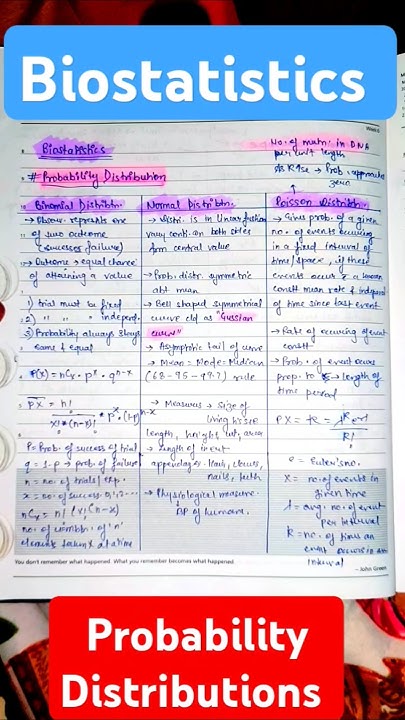 Biostatistics
Biostatistics
No. of mutn. in DNA
per unit length
Prob. approaches
zero
# Probability Distribution
Binomial Distribtn.
→ Observ. reprents one
of two outcome
(success or failure)
→ Outcome → equal chance
of attaining a value
1) trial must be fixed
2) " " " independ.
3) Probability always stays
same & equal
P(x) = nCx . p^x . q^n-x
n!
x!(n-x)!
P = Prob. of success of trial
q = 1-p → prob. of failure
n = no. of trials/exp.
x = no. of success. 0, 1, 2...
nCx = n! / x!(n-x)
no. of combn. of 'n'
elements taken x at a time
Normal Distribtn.
→ Distri. is in linear fashion
vary conti. on both sides
from central value
→ Prob. distr. symmetric
abt mean
→ Bell shaped symmetrical
curve cld as "Gussian
curve"
→ Asymptotic tail of curve
→ Mean = Mode = Median
(68-95-99.7) rule
→ Measures → Size of
living tissue
length, height, wt., area
→ Length of inert
appendages. Hair, claws,
nails, teeth
→ Physiological measure.
BP of humans.
Poisson Distribtn.
→ Gives prob. of a given
no. of events occuring
in a fixed interval of
time/space, if these
events occur a known
constt mean rate & independ
of time since last event
→ Rate of occuring of event
constt.
→ Prob. of event occurs
prop. to length of
time period
e = Euler's no.
X = no. of events in
given time
λ = avg. no. of event
per interval
k = no. of times an
event occurs in
interval
You don't remember what happened. What you remember becomes what happened.
– John Green
Probability
Distributions